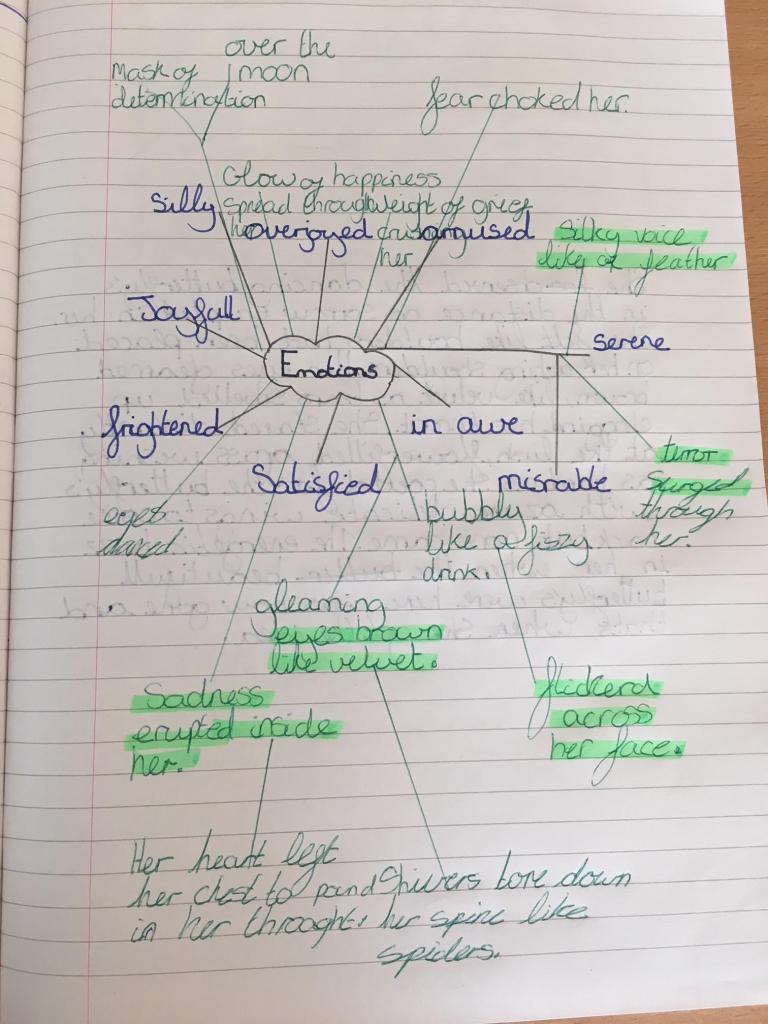 over the
moon
Mask of
determination
fear choked her.
Glow of happiness
spread through
her
weight of grief
crushed
her
Silly
overjoyed
amgused
Silky voice
like a feather
Joyfull
Emotions
serene
frightened
in awe
Satisfied
misrable
terror
surged
through
her.
eyes
darted
bubbly
like a fizzy
drink.
gleaming
eyes brown
like velvet.
Sadness
erupted inside
her.
flickerd
across
her face.
Her heart left
her chest to pand
in her throught.
Shivers tore down
her spine like
spiders.